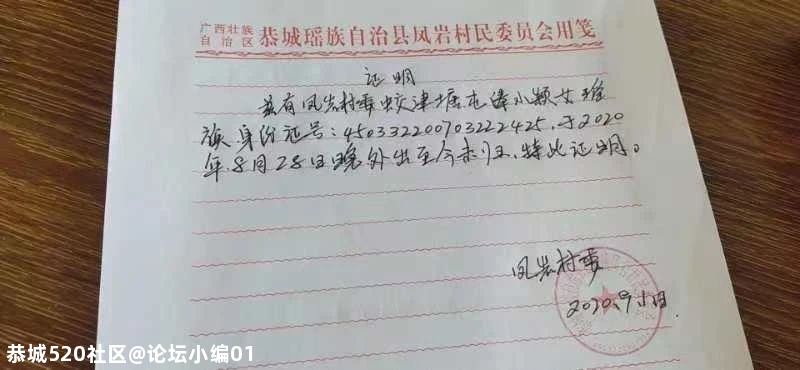 广西壮族
自治区 恭城瑶族自治县凤岩村民委员会用笺
证明
兹有凤岩村委蛟津塘屯小颖女瑶
族身份证号:450332200703222425,于2020
年8月28日晚外出至今未归、特此证明。
凤岩村委
2020.9.1日
恭城520社区@论坛小编01